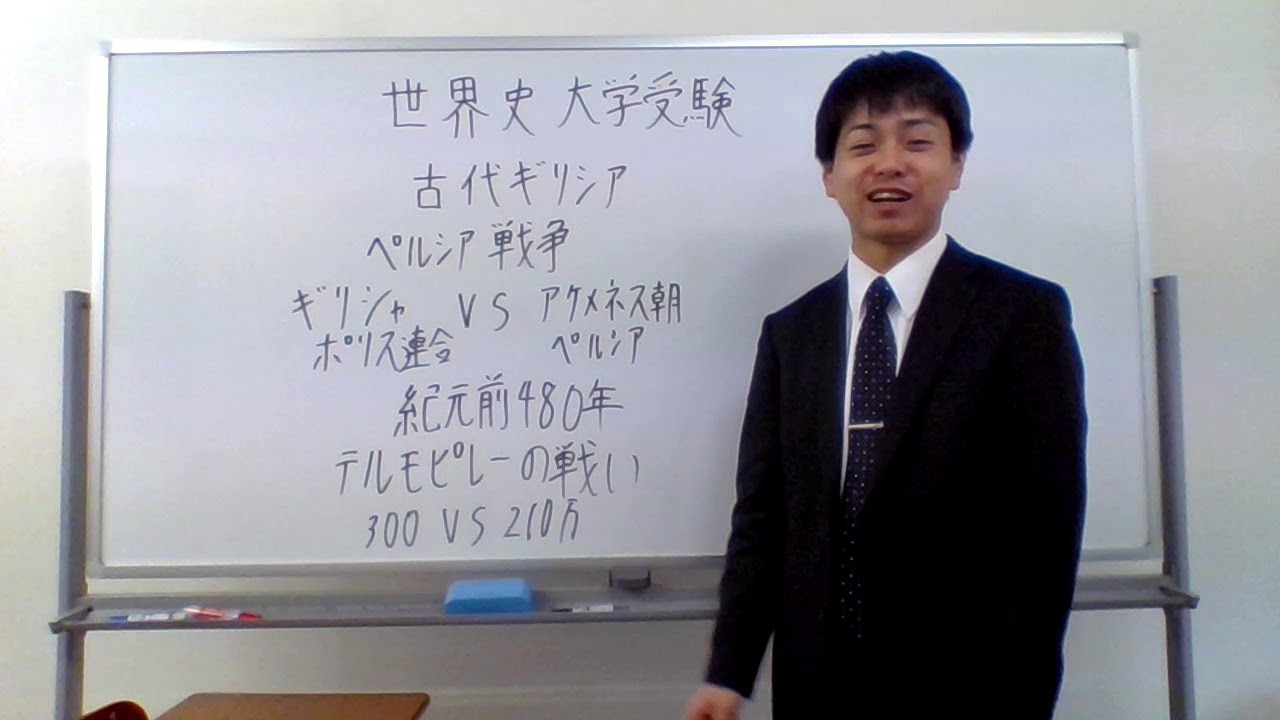 世界史 大学受験
古代ギリシア
ペルシア戦争
ギリシャ VS アケメネス朝
ポリス連合 ペルシア
紀元前480年
テルモピレーの戦い
300 VS 210万